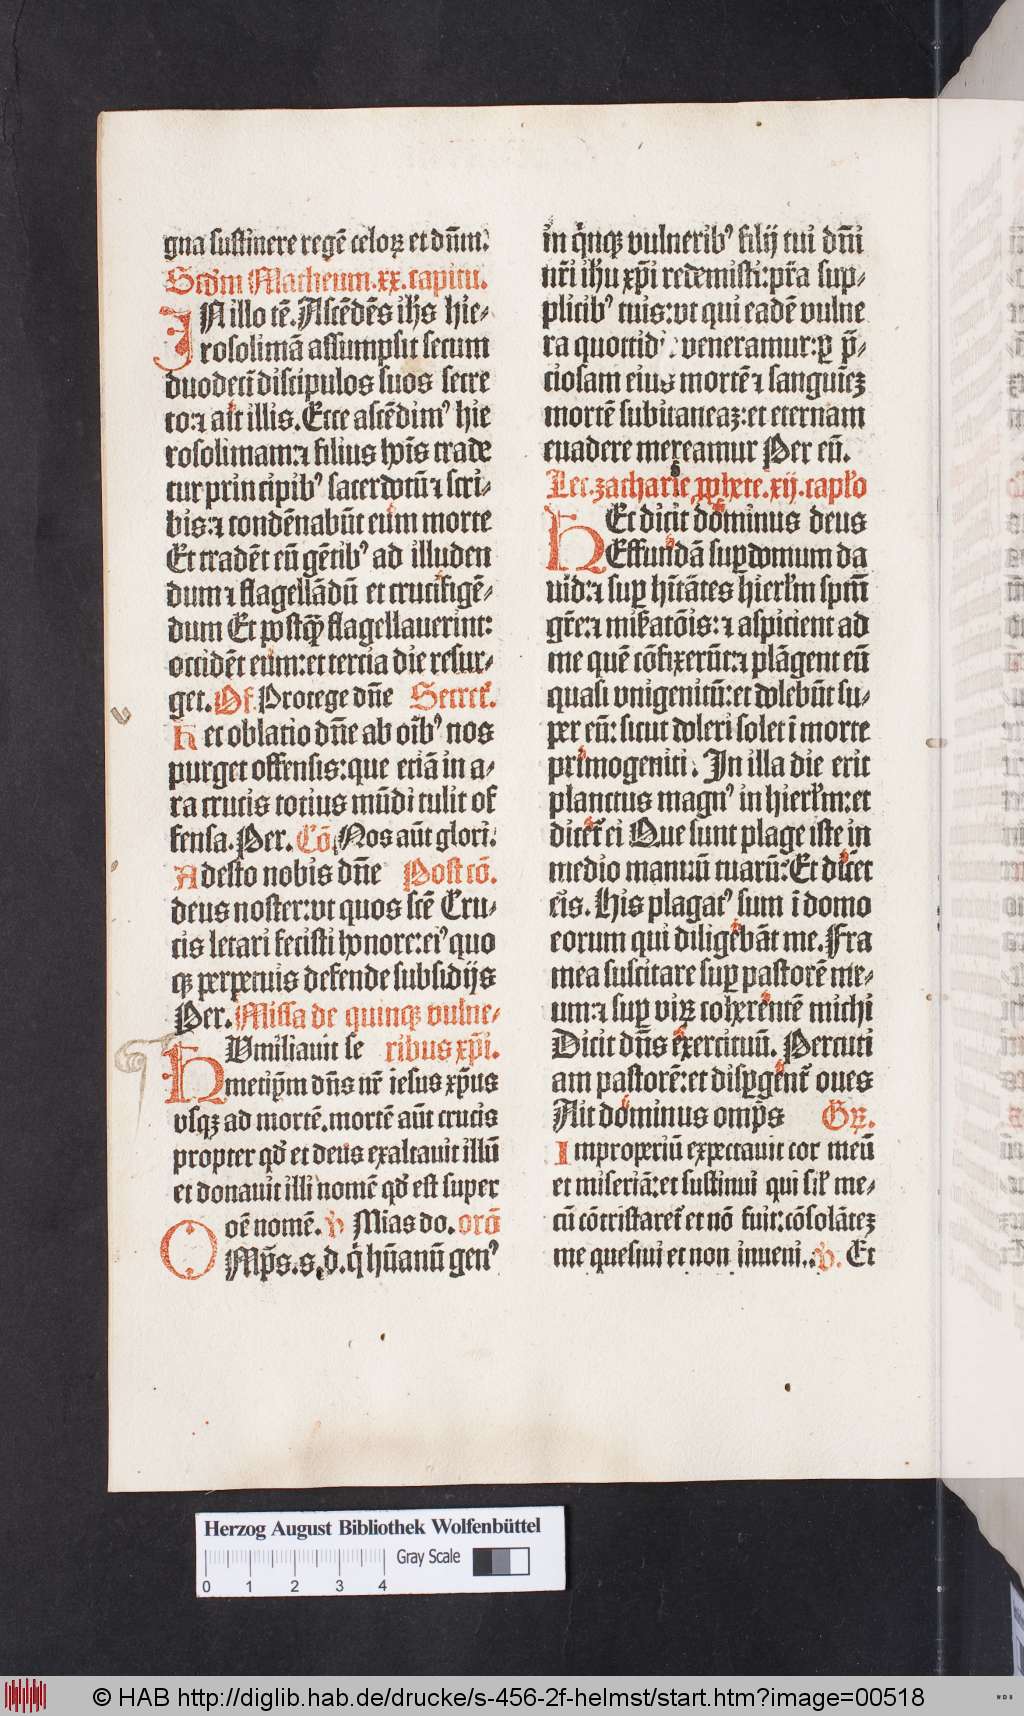 gna sustinere regē celoꝝ et dn̄m.
Scd̄m Matheum.xx.capitu.
IN illo tē. Ascēdēs ihs̄ hie⸗
rosolimā assumpsit secum
duodecī discipulos suos secre
to:⁊ ait illis. Ecce ascēdimꝰ hie
rosolimam:⁊ filius hoīs trade
tur principibꝰ sacerdotū ⁊ scri⸗
bis:⁊ condēnabūt eum morte
Et tradēt eū gētibꝰ ad illuden
dum ⁊ flagellādū et crucifigē⸗
dum Et postqꝫ̄ flagellauerint:
occidēt eum:et tercia die resur⸗
get. Of. Protege dn̄e Secret̄.
hec oblatio dn̄e ab oībꝰ nos
purget offensis:que etiā in a⸗
ra crucis totius mūdi tulit of
fensa. Per. Cō. Nos aūt glori.
Adesto nobis dn̄e Post cō.
deus noster:vt quos scē Cru⸗
cis letari fecisti honore:eiꝰ quo
qꝫ perpetuis defende subsidijs
Per. Missa de quinqꝫ vulne⸗
HVmiliauit se ribus xp̄i.
metip̄m dn̄s nr̄ iesus xp̄us
vsqꝫ ad mortē. mortē aūt crucis
propter qd̄ et deus exaltauit illū
et donauit illi nomē qd̄ est super
oē nomē. v̄ Mias do. orō
OMp̄s. s. d. q̄ hūanū genꝰ
in q̄nqꝫ vulneribꝰ filij tui dn̄i
nr̄i ihu xp̄i redemisti:pr̄a sup⸗
plicibꝰ tuis:vt qui eadē vulne
ra quottidie veneramur:ꝑ p̄⸗
ciosam eius mortē ⁊ sanguinē
mortē subitaneaꝫ:et eternam
euadere mereamur Per eū.
Lec. zacharie ꝓphete.xij.capl̄o
HEc dicit dominus deus
Effundā suꝑ domum da
uid:⁊ suꝑ hītātes hierl̄m spm̄
gr̄e:⁊ mis̄atōis:⁊ aspicient ad
me quē cōfixerūt:⁊ plāgent eū
quasi vnigenitū:et dolebūt su⸗
per eū: sicut doleri solet ī morte
primogeniti. In illa die erit
planctus magnꝰ in hierl̄m:et
dicet̄ ei Que sunt plage iste in
medio manuū tuarū? Et dicet
eīs. His plagatꝰ sum ī domo
eorum qui diligebāt me. Fra
mea suscitare suꝑ pastorē me⸗
um:⁊ suꝑ virꝫ coherentē michi
Dicit dn̄s exercituū. Percuti
am pastorē:et disꝑgent̄ oues
Ait dominus omp̄s Gꝝ.
Improperiū expectauit cor meū
et miseriā:et sustinui qui sil̄ me⸗
cū cōtristaret̄ et nō fuit:cōsolāteꝫ
me quesiui et non inueni.. v̄. Et
Herzog August Bibliothek Wolfenbüttel
Gray Scale
0 1 2 3 4
© HAB http://diglib.hab.de/drucke/s-456-2f-helmst/start.htm?image=00518